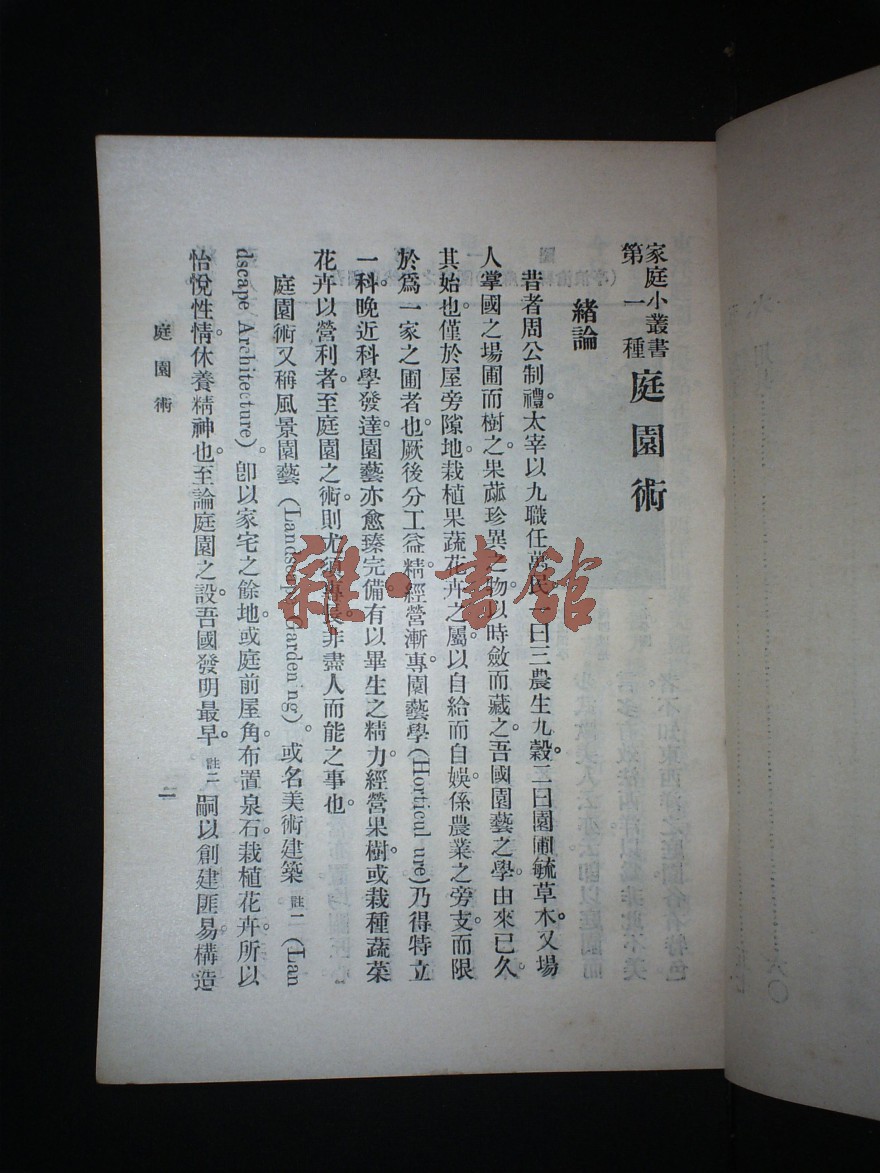 家庭小叢書
第一種
庭園術
緒論
昔者周公制禮。太宰以九職任萬民。一曰三農生九穀。二曰園圃毓草木。又場
人掌國之場圃而樹之。果蓏珍異之物。以時斂而藏之。吾國園藝之學。由來已久。
其始也。僅於屋旁隙地。栽植果蔬花卉之屬。以自給而自娛。係農業之旁支。而限
於爲一家之圃者也。厥後分工益精。經營漸專。園藝學(Horticulture)乃得特立
一科。晚近科學發達。園藝亦愈臻完備。有以畢生之精力。經營果樹。或栽種蔬菜
花卉以營利者。至庭園之術。則尤須專長。非盡人而能之事也。
庭園術又稱風景園藝(Landscape Gardening)。或名美術建築註一(Lan
dscape Architecture)。卽以家宅之餘地。或庭前屋角。布置泉石。栽植花卉。所以
怡悅性情。休養精神也。至論庭園之設。吾國發明最早。註二嗣以創建匪易。構造
庭園術
雜·書館